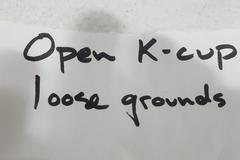 Open K-cup
loose grounds